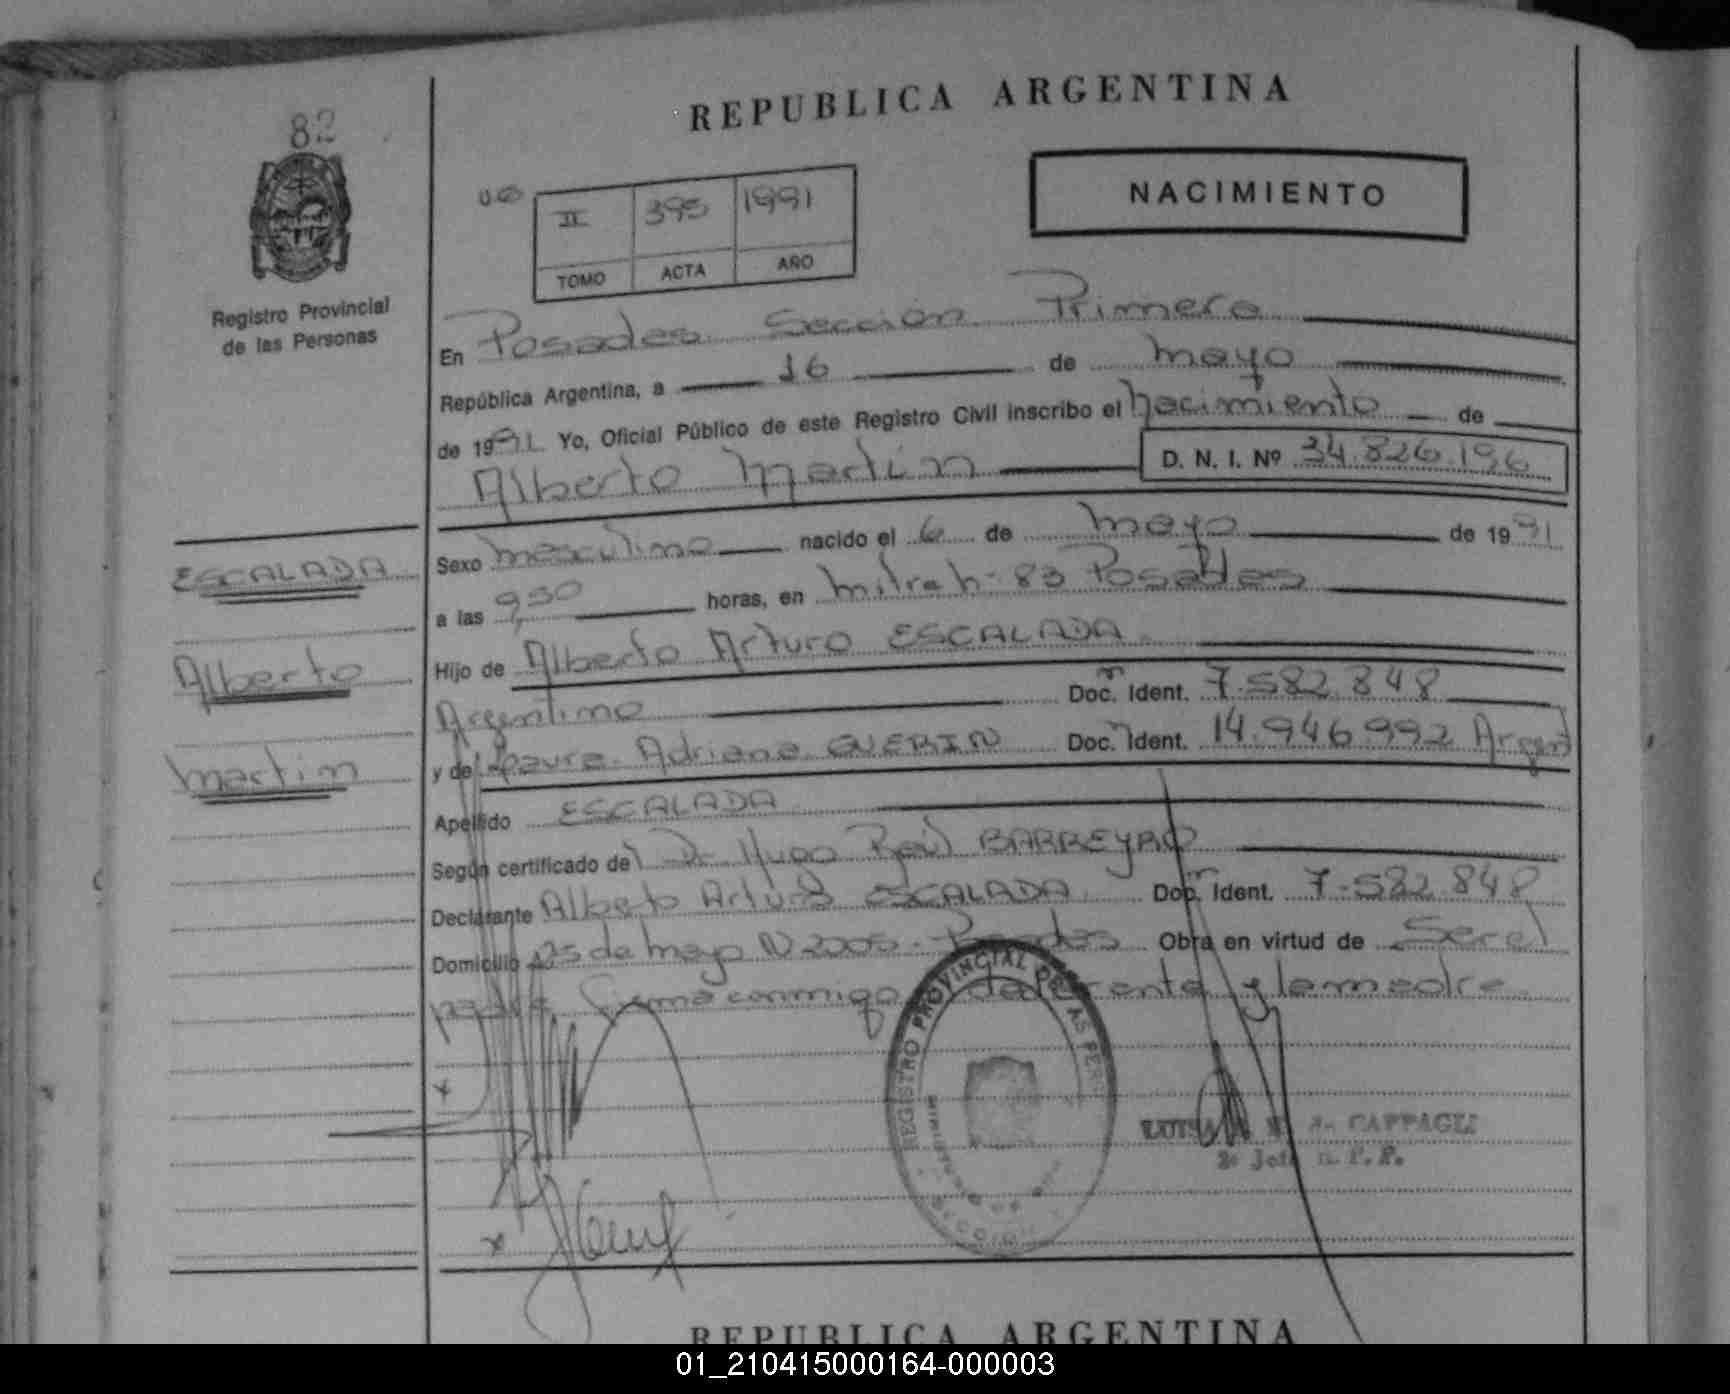 82
REPUBLICA ARGENTINA
NACIMIENTO
II 395 1991
TOMO ACTA AÑO
Registro Provincial
de las Personas
En Posadas Sección Primera
República Argentina, a 16 de mayo
de 1991 Yo, Oficial Público de este Registro Civil inscribo el nacimiento de
Alberto Martin D. N. I. Nº 34.826.196
Sexo masculino nacido el 6 de mayo de 1991
ESCALADA
a las 9,50 horas, en Mitre h-83 Posadas
Hijo de Alberto Arturo ESCALADA
Alberto
Argentino Doc. Ident. 7.582.848
y de Laura Adriana GUERIN Doc. Ident. 14.946.992 Argent
Martin
Apellido ESCALADA
Según certificado del Dr Hugo Raúl BARREYRO
Declarante Alberto Arturo ESCALADA Doc. Ident. 7.582.848
Domicilio 25 de mayo N 2005 - Posadas Obra en virtud de Ser el
padre firma conmigo declarante y la madre
x
REGISTRO PROVINCIAL DE LAS PERS
MINISTERIO DE
CAPPAGLI
2º Jefe R. P. P.
x
REPUBLICA ARGENTINA
01_210415000164-000003